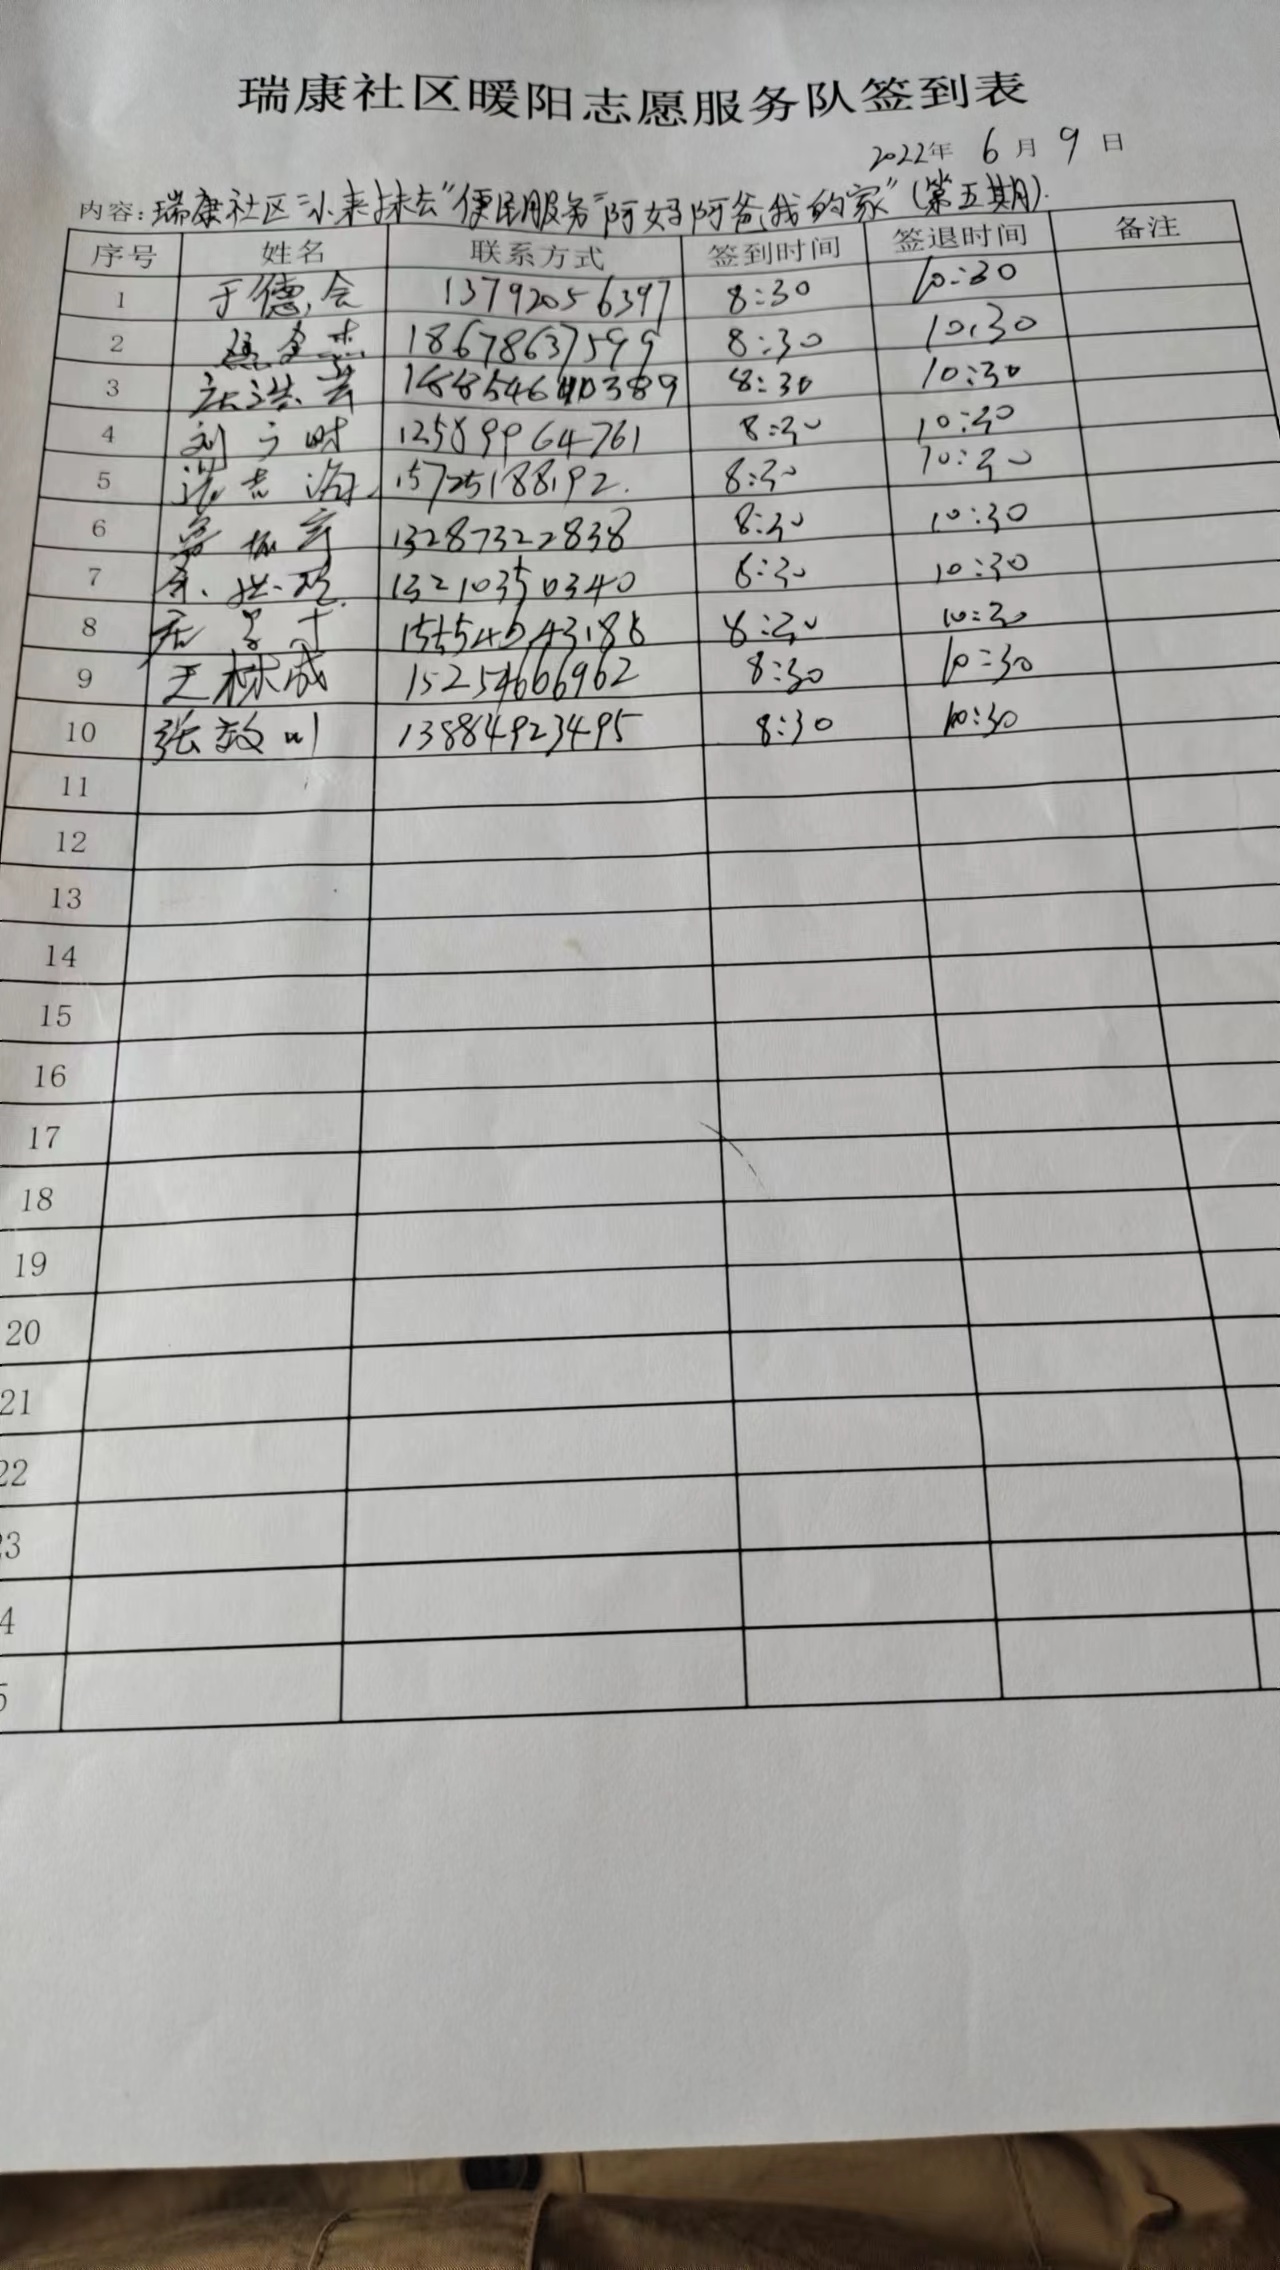 瑞康社区暖阳志愿服务队签到表
2022年 6 月 9 日
内容: 瑞康社区"小来抹去"便民服务"阿妈阿爸我的家"(第五期).
序号 姓名 联系方式 签到时间 签退时间 备注
1 于德会 13792056397 8:30 10:30
2 18678637599 8:30 10:30
3 8:30 10:30
4 刘 12589964761 8:30 10:30
5 15725188192. 8:30 10:30
6 13287322838 8:30 10:30
7 13210350340 8:30 10:30
8 8:30 10:30
9 王林成 15254666962 8:30 10:30
10 张 13884923495 8:30 10:30
11
12
13
14
15
16
17
18
19
20
21
22
23
4
5